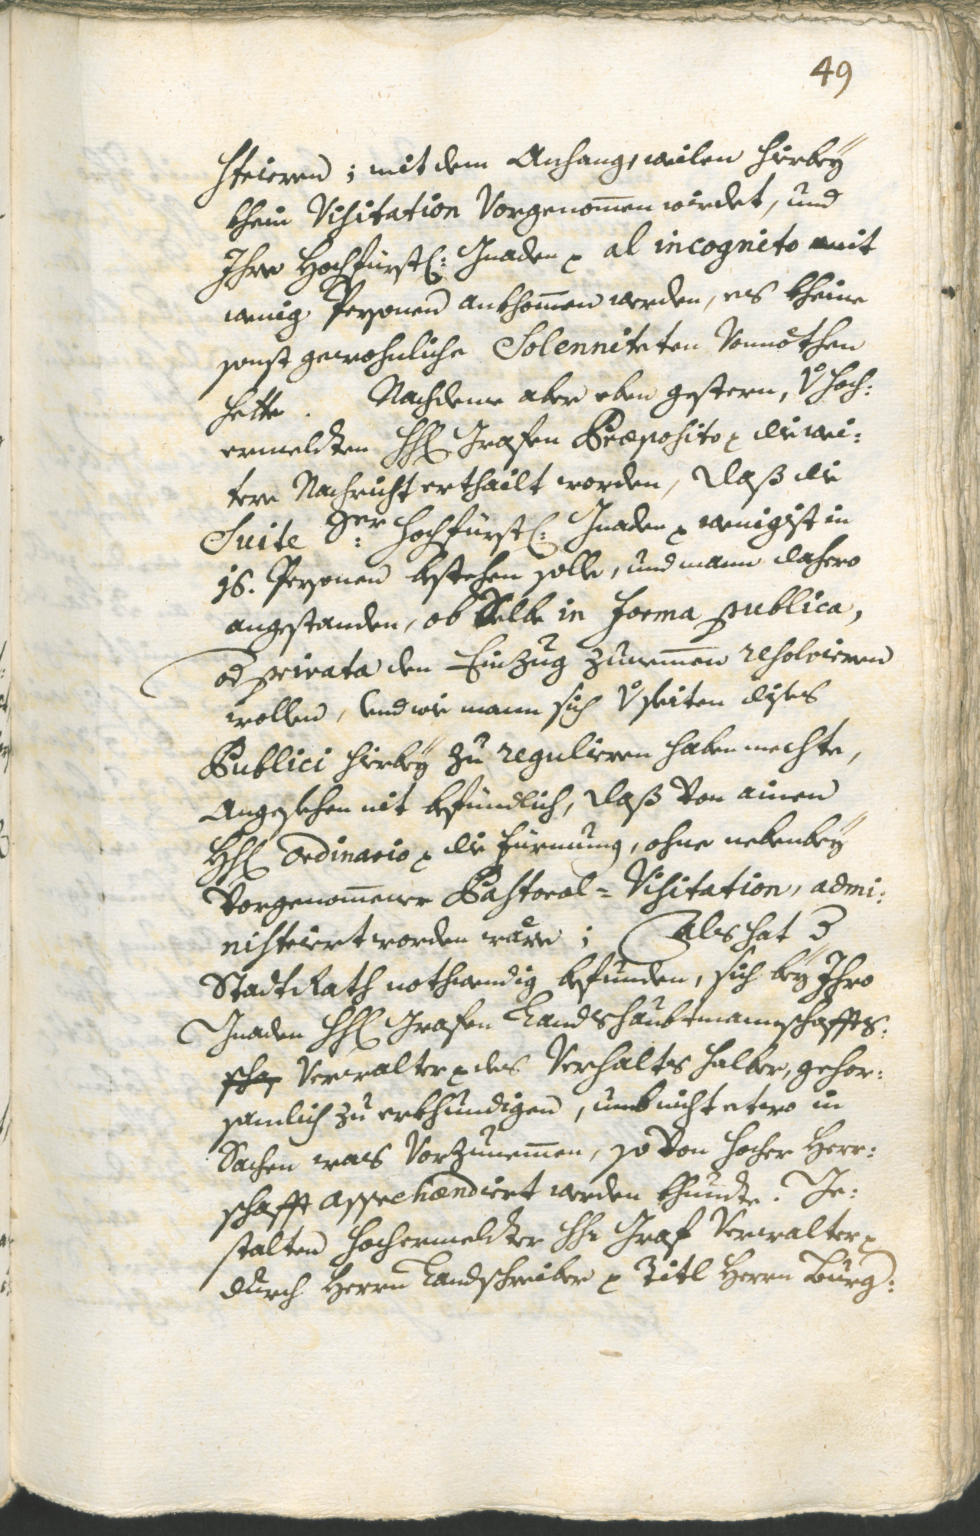 49
strieren; mit dem Anhang, weilen hierbeÿ
khein Visitation Vorgenom̄en wirdet, und
Ihre Hochfürstl: Gnaden al incognito mit
wenig Personen ankhom̄en werden, es kheine
sonst gewohnliche Solenniteten Vonnöthen
hette. Nachdeme aber eben gestern, V° hoch:
ermeldten HH Grafen Præposito die wei:
tere Nachricht erthailt worden, daß die
Suite Ser: Hochfürstl: Gnaden wenigist in
16. Personen bestehen solle, und mann dahero
angestanden, ob Selbe in forma publica,
od privata den Einzug zunem̄en resolvieren
wollen, und wie mann sich V° seiten dises
Publici hierbeÿ zu regulieren haben mechte,
Angesehen nit befündlich, daß Von ainen
HH Ordinario die fürmung, ohne nebenbeÿ
Vorgenom̄ener Pastoral-Visitation, admi:
nistriert worden wäre; Als hat
Stadt Rath nothwendig befunden, sich beÿ Ihro
Gnaden HH Grafen Landshaubtmannschaffts:
Verwalter des Verhalts halber, gehor:
samlich zu erkhundigen, umb nicht etwo in
Sachen was Vorzunem̄en, so Von hocher Herr:
schafft apprehendiert werden khundte. Ge:
stalten hochermeldter HH Graf Verwalter
durch Herrn Landschreiber Titl Herrn Burg: